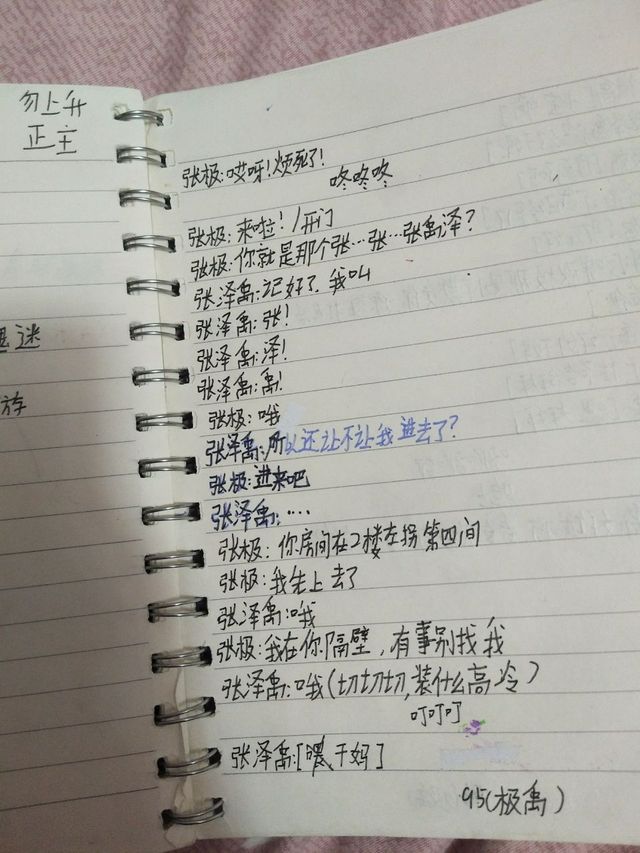 勿上升
正主
迷
张极:哎呀!烦死了!
咚咚咚
张极:来啦!/开门
张极:你就是那个张…张…张禹泽?
张泽禹:记好了.我叫
张泽禹:张!
张泽禹:泽!
张泽禹:禹!
张极:哦
张泽禹:所以还让不让我进去了?
张极:进来吧
张泽禹:…
张极:你房间在2楼左拐第四间
张极:我先上去了
张泽禹:哦
张极:我在你隔壁,有事别找我
张泽禹:哦(切切切,装什么高冷)
叮叮叮
张泽禹:[喂,干妈]
95(极禹)